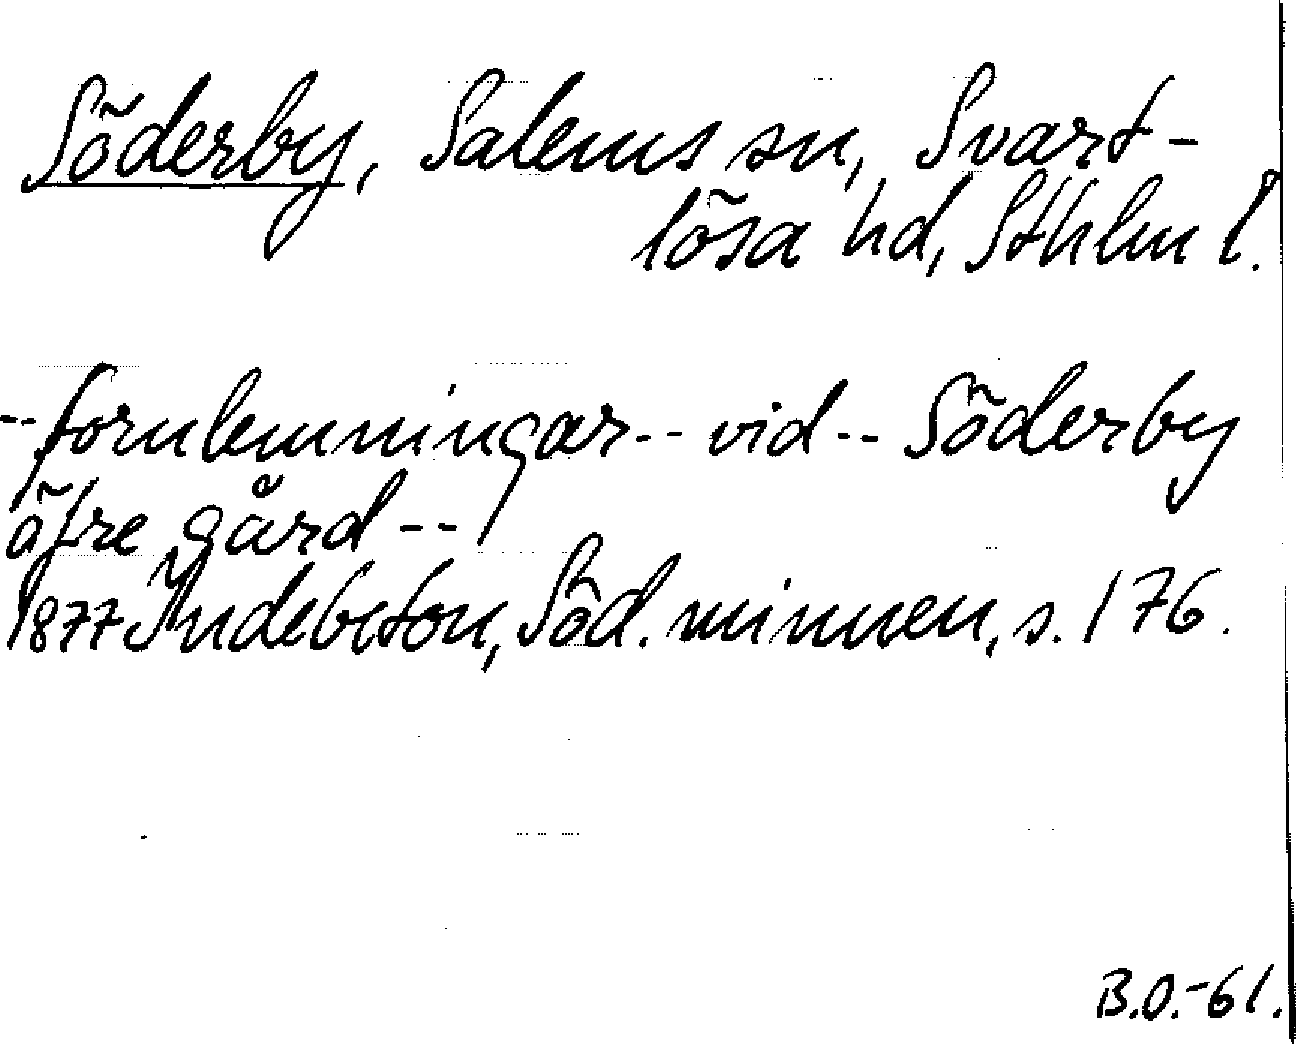 Söderby, Salems sn, Svart-
lösa hd, Sthlm l.
--fornlemningar-- vid -- Söderby
öfre gård --
1877 Indebetou, Söd. minnen, s. 176.
B.O.-61.